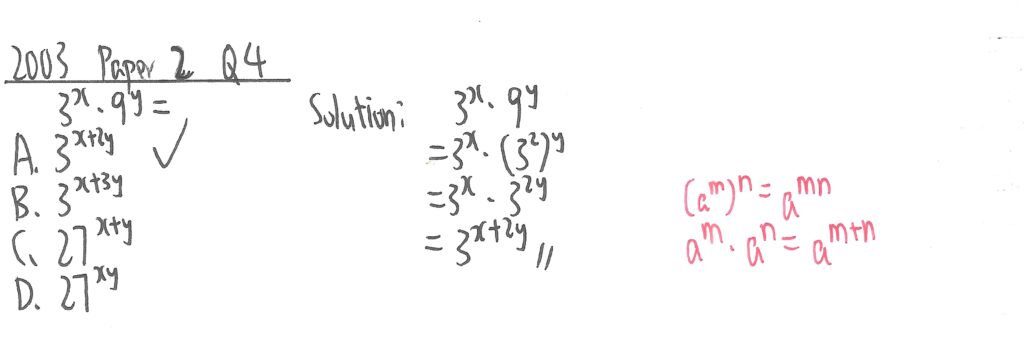 2003 Paper 2 Q4
3^x · 9^y =
A. 3^{x+2y} ✓
B. 3^{x+3y}
C. 27^{x+y}
D. 27^{xy}
Solution: 3^x · 9^y
= 3^x · (3^2)^y
= 3^x · 3^{2y}
= 3^{x+2y} //
(a^m)^n = a^{mn}
a^m · a^n = a^{m+n}